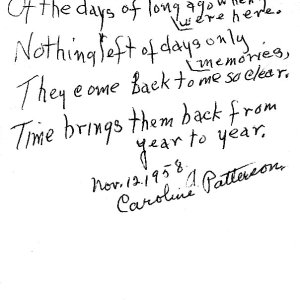 Of the days of long ago when
were here.
Nothing left of days only
memories,
They come back to me so clear.
Time brings them back from
year to year.
Nov. 12, 1958.
Caroline J. Patterson.